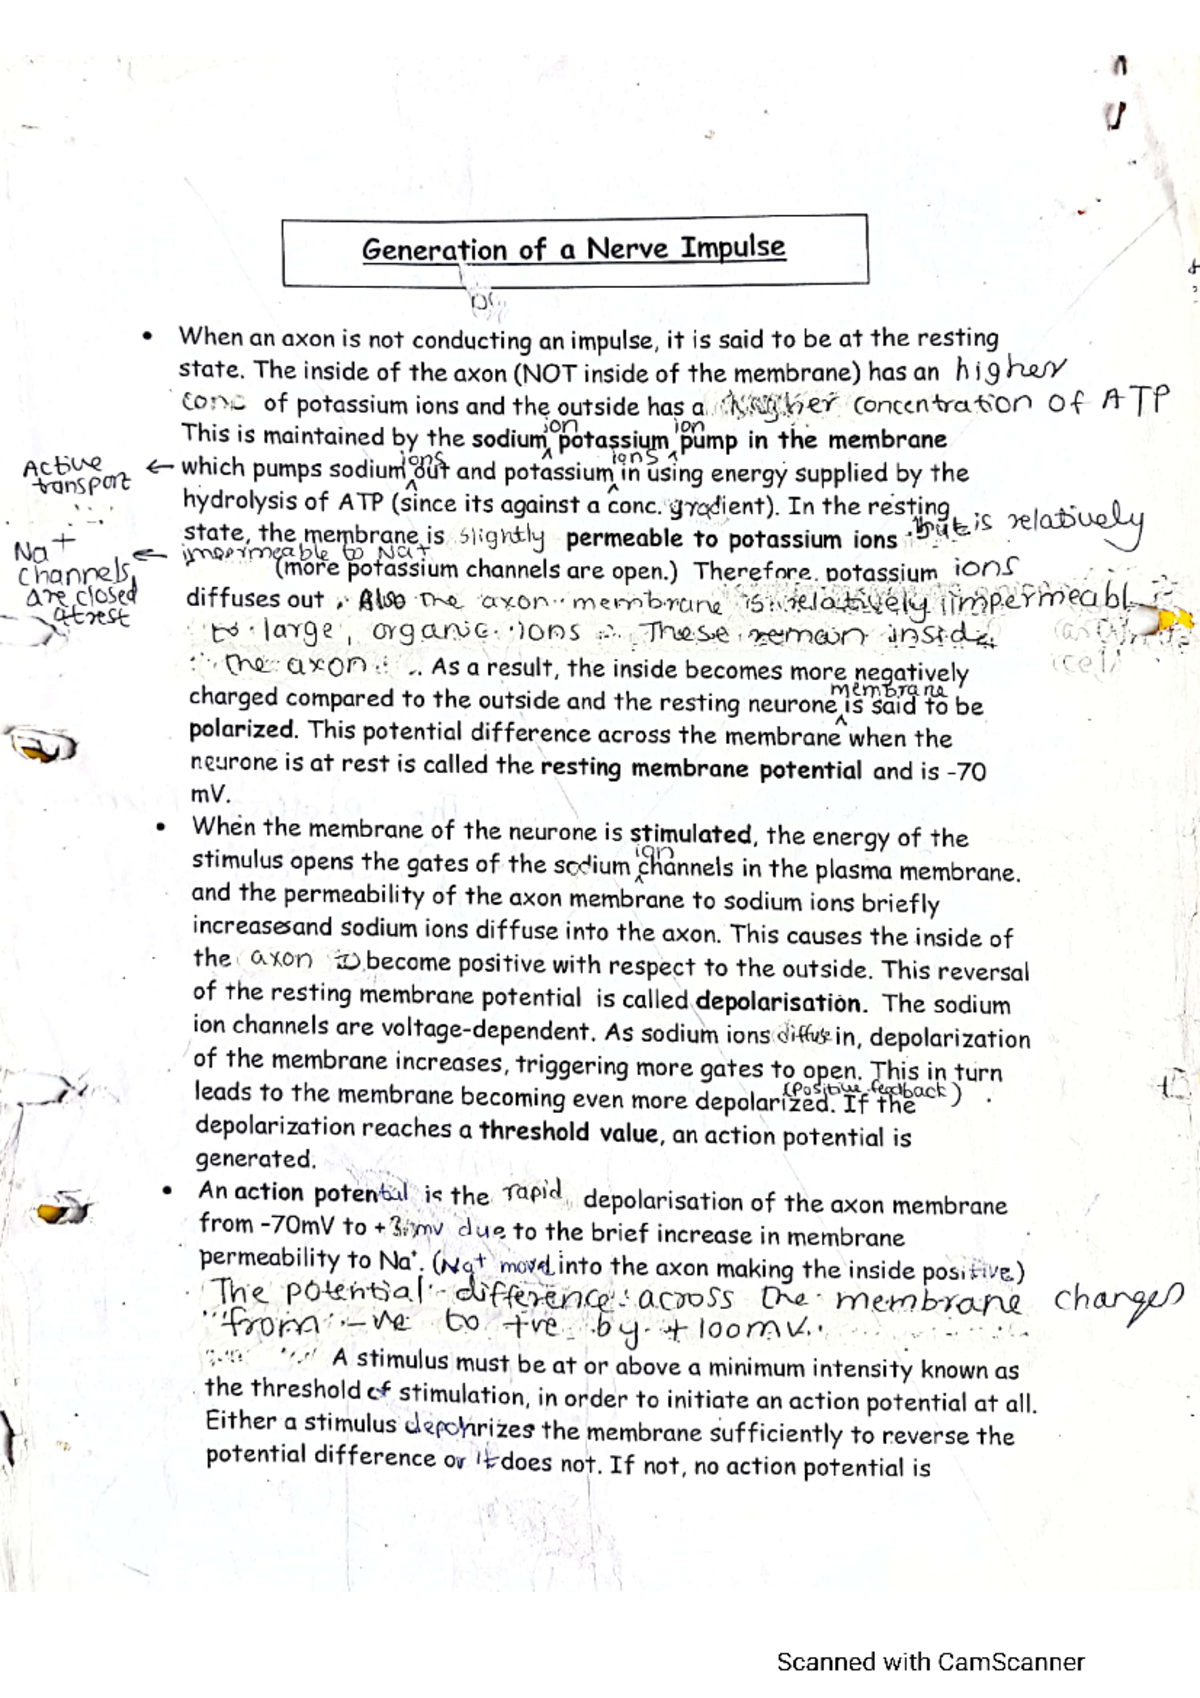 Generation of a Nerve Impulse
• When an axon is not conducting an impulse, it is said to be at the resting
state. The inside of the axon (NOT inside of the membrane) has an higher
conc of potassium ions and the outside has a higher concentration of ATP
ion ion
This is maintained by the sodium potassium pump in the membrane
Active transport ← which pumps sodium ions out and potassium ions in using energy supplied by the
hydrolysis of ATP (since its against a conc. gradient). In the resting
state, the membrane is slightly permeable to potassium ions but is relatively
Na+ channels are closed at rest ← impermeable to Na+
(more potassium channels are open.) Therefore. potassium ions
diffuses out. Also the axon membrane is relatively impermeabl
to large, organic ions ∴ These remain inside
the axon .. As a result, the inside becomes more negatively
charged compared to the outside and the resting neurone membrane is said to be
polarized. This potential difference across the membrane when the
neurone is at rest is called the resting membrane potential and is -70
mV.
• When the membrane of the neurone is stimulated, the energy of the
stimulus opens the gates of the sodium ion channels in the plasma membrane.
and the permeability of the axon membrane to sodium ions briefly
increases and sodium ions diffuse into the axon. This causes the inside of
the axon to become positive with respect to the outside. This reversal
of the resting membrane potential is called depolarisation. The sodium
ion channels are voltage-dependent. As sodium ions diffuse in, depolarization
of the membrane increases, triggering more gates to open. This in turn
(positive feedback)
leads to the membrane becoming even more depolarized. If the
depolarization reaches a threshold value, an action potential is
generated.
• An action potential is the rapid depolarisation of the axon membrane
from -70mV to mv due to the brief increase in membrane
permeability to Na+. (Na+ moved into the axon making the inside positive)
The potential difference across the membrane changes
from -ve to +ve by +100mV.
A stimulus must be at or above a minimum intensity known as
the threshold of stimulation, in order to initiate an action potential at all.
Either a stimulus depolarizes the membrane sufficiently to reverse the
potential difference or it does not. If not, no action potential is
Scanned with CamScanner